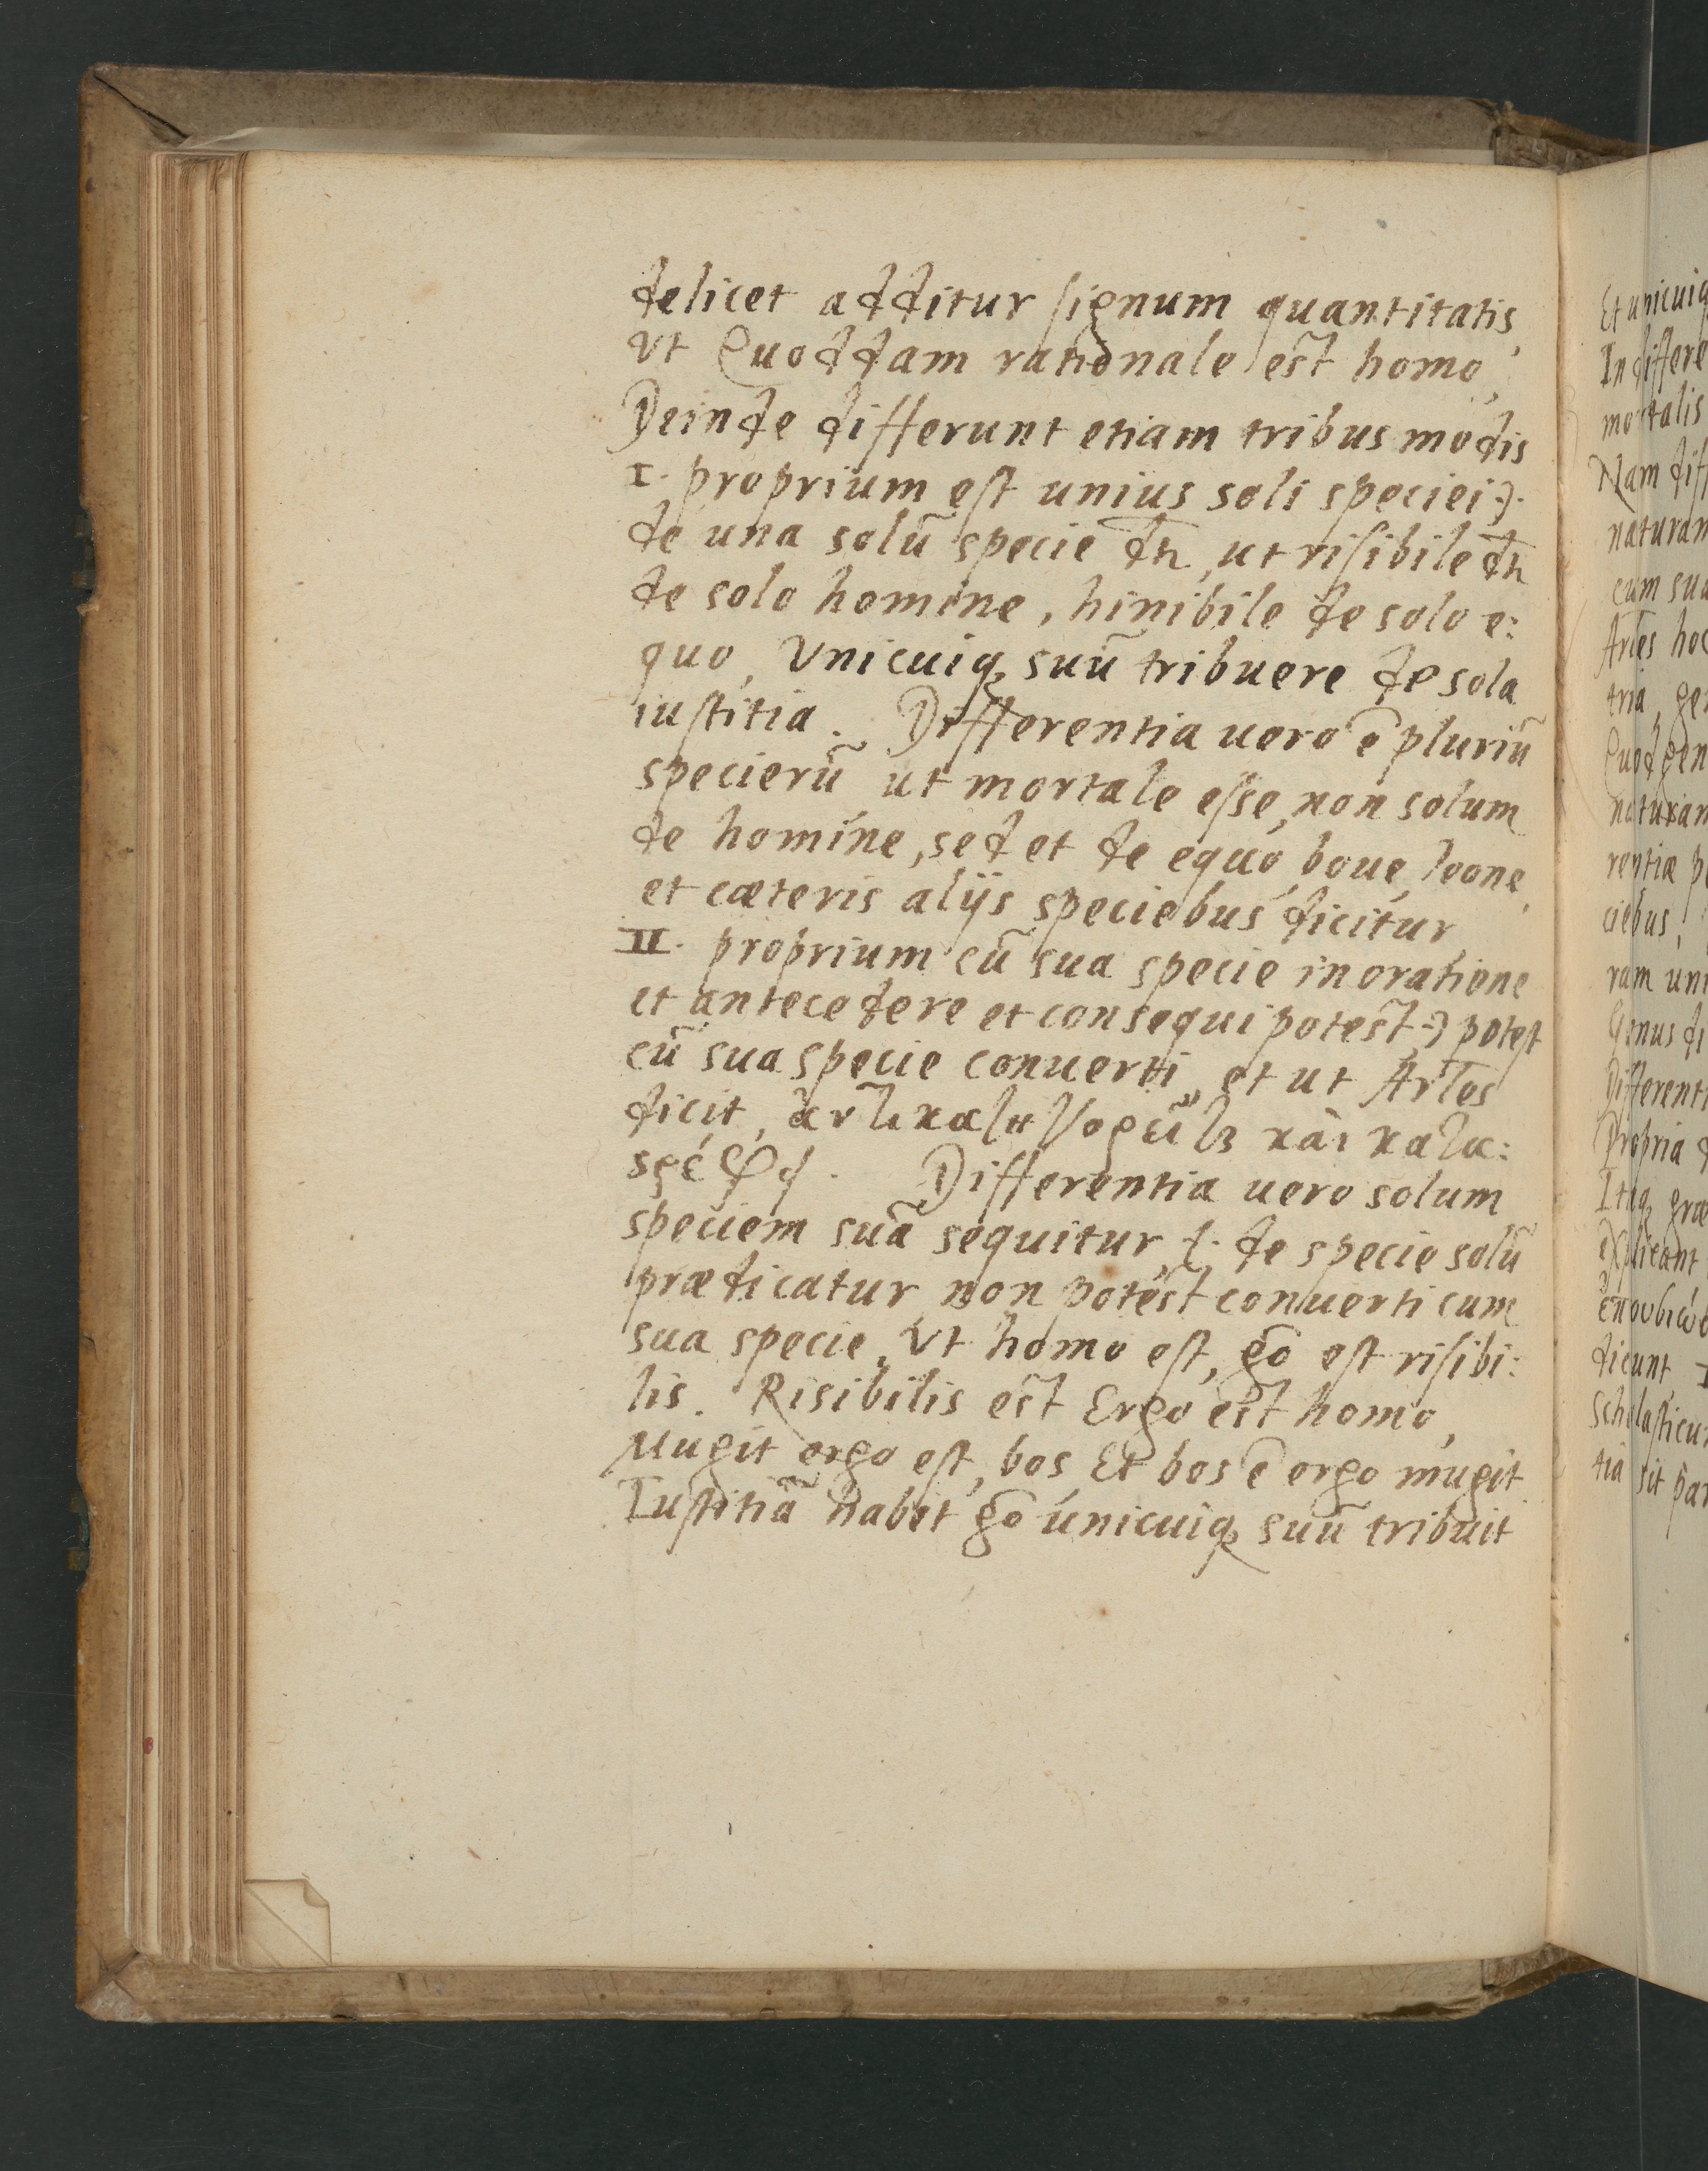 delicet additur signum quantitatis,
vt Quoddam rationale est homo,
Deinde differunt etiam tribus modis
I. proprium est unius soli speciei
de una solũ specie dr̃, ut risibile dr̃
de solo homine, hinibile de solo e:
quo, Vnicuiq; suũ tribuere de sola
iustitia. Differentia uero ẽ pluriũ
specierũ ut mortale esse, non solum
de homine, sed et de equo, boue, leone,
et cæteris alijs speciebus dicitur,
II. proprium cũ sua specie in oratione
et antecedere et consequi potest potest
cũ sua specie conuerti, et ut Artõs
dicit,
Differentia uero solum
speciem suã sequitur, de specie solũ
prædicatur non potest conuerti cum
sua specie. Vt homo est, gõ est risibi:
lis. Risibilis est Ergo est homo,
Mugit ergo est, bos, Et bos ẽ ergo mugit
Iustitiã habet gõ unicuiq; suũ tribuit
Et unicuiq
In differe
mortalis
Nam diff
naturam
cum sua
Artẽs hoc
tria, gen
Quod gen
naturam
rentiæ p
ciebus,
ram uni
Genus di
Different
Propria d
Itaq; græ
explicant
dicunt
Scholasticu
tia sit par